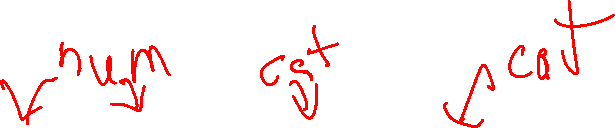 num cat cat